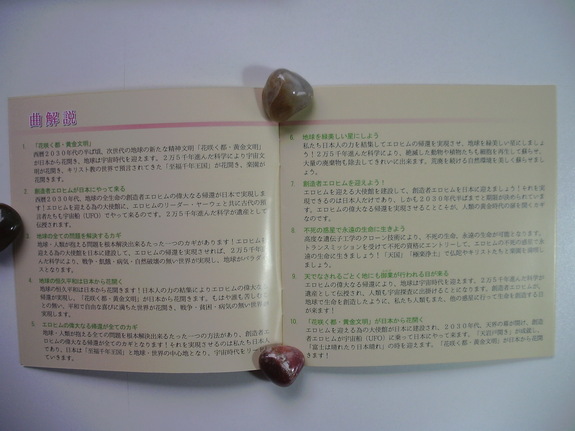 曲解説
1. 「花咲く都・黄金文明」
西暦2030年代の半ば頃、次世代の地球の新たな精神文明「花咲く都・黄金文明」
が日本から花開き、地球は宇宙時代を迎えます。2万5千年進んだ科学により宇宙文
明が花開き、キリスト教の世界で預言されてきた「至福千年王国」が花開き、楽園が
花開きます。
2. 創造者エロヒムが日本にやって来る
西暦2030年代、地球の全生命の創造者エロヒムの偉大なる帰還が日本で実現しま
す！エロヒムを迎える為の大使館に、エロヒムのリーダー・ヤーウェと共に古代の預
言者たちも宇宙船（UFO）でやって来るのです。2万5千年進んだ科学が遺産として
伝授されます。
3. 地球の全ての問題を解決するカギ
地球・人類が抱える問題を根本解決出来るたった一つのカギがあります！エロヒムを
迎える為の大使館を日本に建設して、エロヒムの偉大なる帰還を実現させれば、2万5千年進
んだ科学により、戦争・飢餓・病気・自然破壊の無い世界が実現し、地球がパラダイ
スとなります。
4. 地球の恒久平和は日本から花開く
地球の恒久平和は日本から花開きます！日本人の力の結集によりエロヒムの偉大なる帰
還が実現し、「花咲く都・黄金文明」が日本から花開きます。もはや誰も苦しむこ
との無い、平和で自由な喜びに満ちた世界が花開き、戦争・貧困・病気の無い世界が
実現します。
5. エロヒムの偉大なる帰還が全てのカギ
地球・人類が抱える全ての問題を根本解決出来るたった一つの方法があり、創造者エ
ロヒムの偉大なる帰還が全てのカギとなります！それを実現させるのは私たち日本人
であり、日本は「至福千年王国」と地球・世界の中心地となり、宇宙時代をリード
していきます。
6. 地球を緑美しい星にしよう
私たち日本人の力を結集してエロヒムの帰還を実現させ、地球を緑美しい星にしまし
ょう！2万5千年進んだ科学により、絶滅した動物や植物たちも細胞を再生して蘇らせ、
大量の廃棄物も除去してきれいに出来ます。荒廃を続ける自然環境を美しく蘇らせまし
ょう。
7. 創造者エロヒムを迎えよう！
エロヒムを迎える大使館を建設して、創造者エロヒムを日本に迎えましょう！それを実
現できるのは日本人だけであり、しかも2030年代半ばまでと期限が決められていま
す。エロヒムの偉大なる帰還を実現させることこそが、人類の黄金時代の扉を開くカギ
なのです。
8. 不死の惑星で永遠の生命に生きよう
高度な遺伝子工学のクローン技術により、不死の生命、永遠の生命が可能となります。
トランスミッションを受けて不死の資格にエントリーして、エロヒムの不死の惑星で永
遠の生命に生きましょう！「天国」「極楽浄土」で仏陀やキリストたちと楽園に生き
ましょう。
9. 天でなされるごとく地にも御業が行われる日が来る
エロヒムの偉大なる帰還により、地球は宇宙時代を迎えます。2万5千年進んだ科学が
遺産として伝授され、人類も宇宙探査に出掛けることになります。創造者エロヒムが
地球で生命を創造したように、私たち人類もまた、他の惑星に行って生命を創造する日
が来ます！
10. 「花咲く都・黄金文明」が日本から花開く
エロヒムを迎える為の大使館が日本に建設され、2030年代、天界の幕が開け、創造
者エロヒムが宇宙船（UFO）に乗って日本にやって来ます。「天岩戸開き」が成就し、
「富士は晴れたり日本晴れ」の時を迎えます。「花咲く都・黄金文明」が日本から花開
きます！